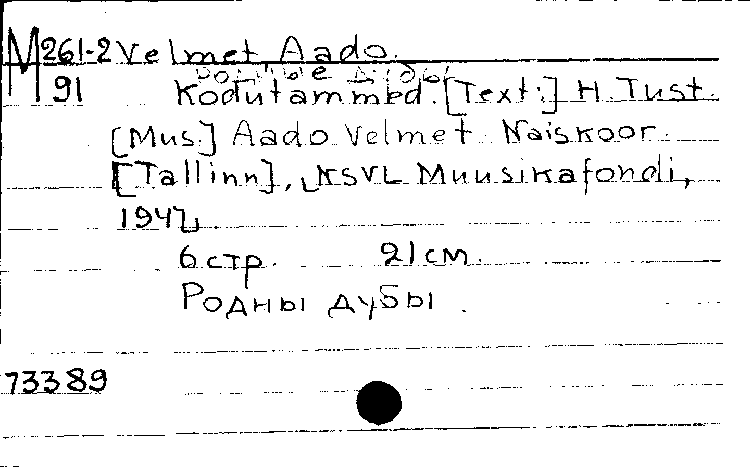 M 261-2 Velmet, Aado.
91 Kodutammed. [Text:] H. Tust.
[Mus.] Aado Velmet. Naiskoor.
[Tallinn], NSVL Muusikafondi,
1947,
6 стр. 21 см.
Родны дубы.
73389